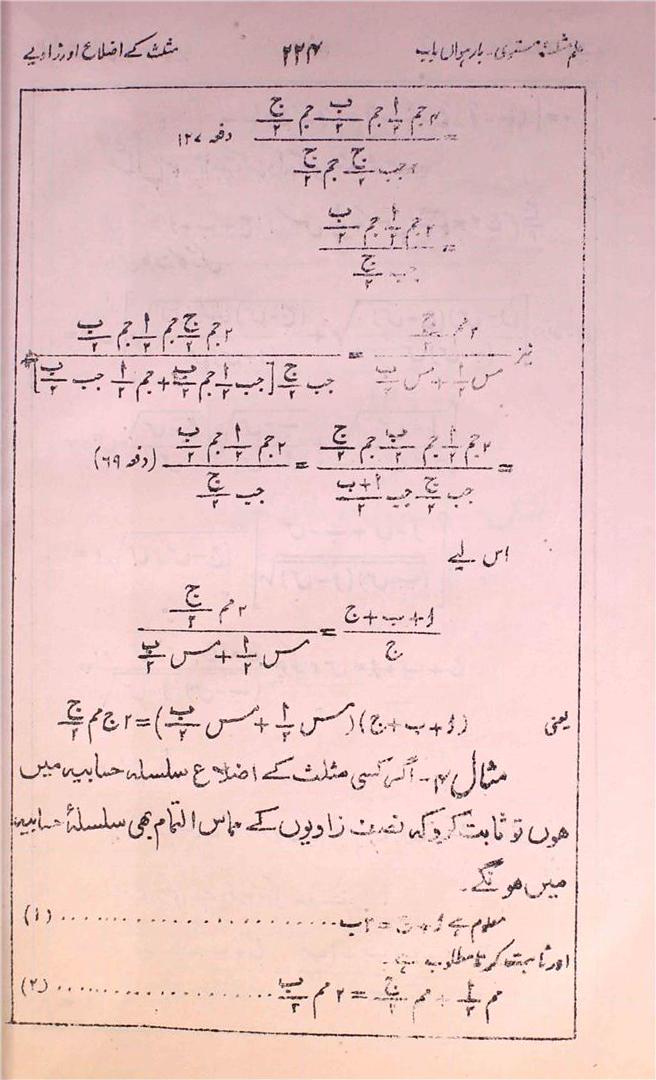 علم مثلث مستوی۔ بارہواں باب ۲۲۴ مثلث کے اضلاع اور زاویے
= (۴ جم ا/۲ جم ب/۲ جم ج/۲) / (۲ جب ج/۲ جم ج/۲) دفعہ ۱۲۷
= (۲ جم ا/۲ جم ب/۲) / (جب ج/۲)
نیز (۲ مم ج/۲) / (مس ا/۲ + مس ب/۲) = (۲ جم ج/۲ جم ا/۲ جم ب/۲) / (جب ج/۲ [جب ا/۲ جم ب/۲ + جم ا/۲ جب ب/۲])
= (۲ جم ا/۲ جم ب/۲ جم ج/۲) / (جب ج/۲ جب (ا+ب)/۲) = (۲ جم ا/۲ جم ب/۲) / (جب ج/۲) (دفعہ ۶۹)
اس لیے
(ا + ب + ج) / ج = (۲ مم ج/۲) / (مس ا/۲ + مس ب/۲)
یعنی (ا + ب + ج)(مس ا/۲ + مس ب/۲) = ۲ ج مم ج/۲
مثال ۴۔ اگر کسی مثلث کے اضلاع سلسلہ حسابیہ میں
ہوں تو ثابت کرو کہ نصف زاویوں کے مماس التمام بھی سلسلۂ حسابیہ
میں ہونگے۔
معلوم ہے ا + ج = ۲ب .................... (۱)
اور ثابت کرنا مطلوب ہے۔
مم ا/۲ + مم ج/۲ = ۲ مم ب/۲ .................... (۲)